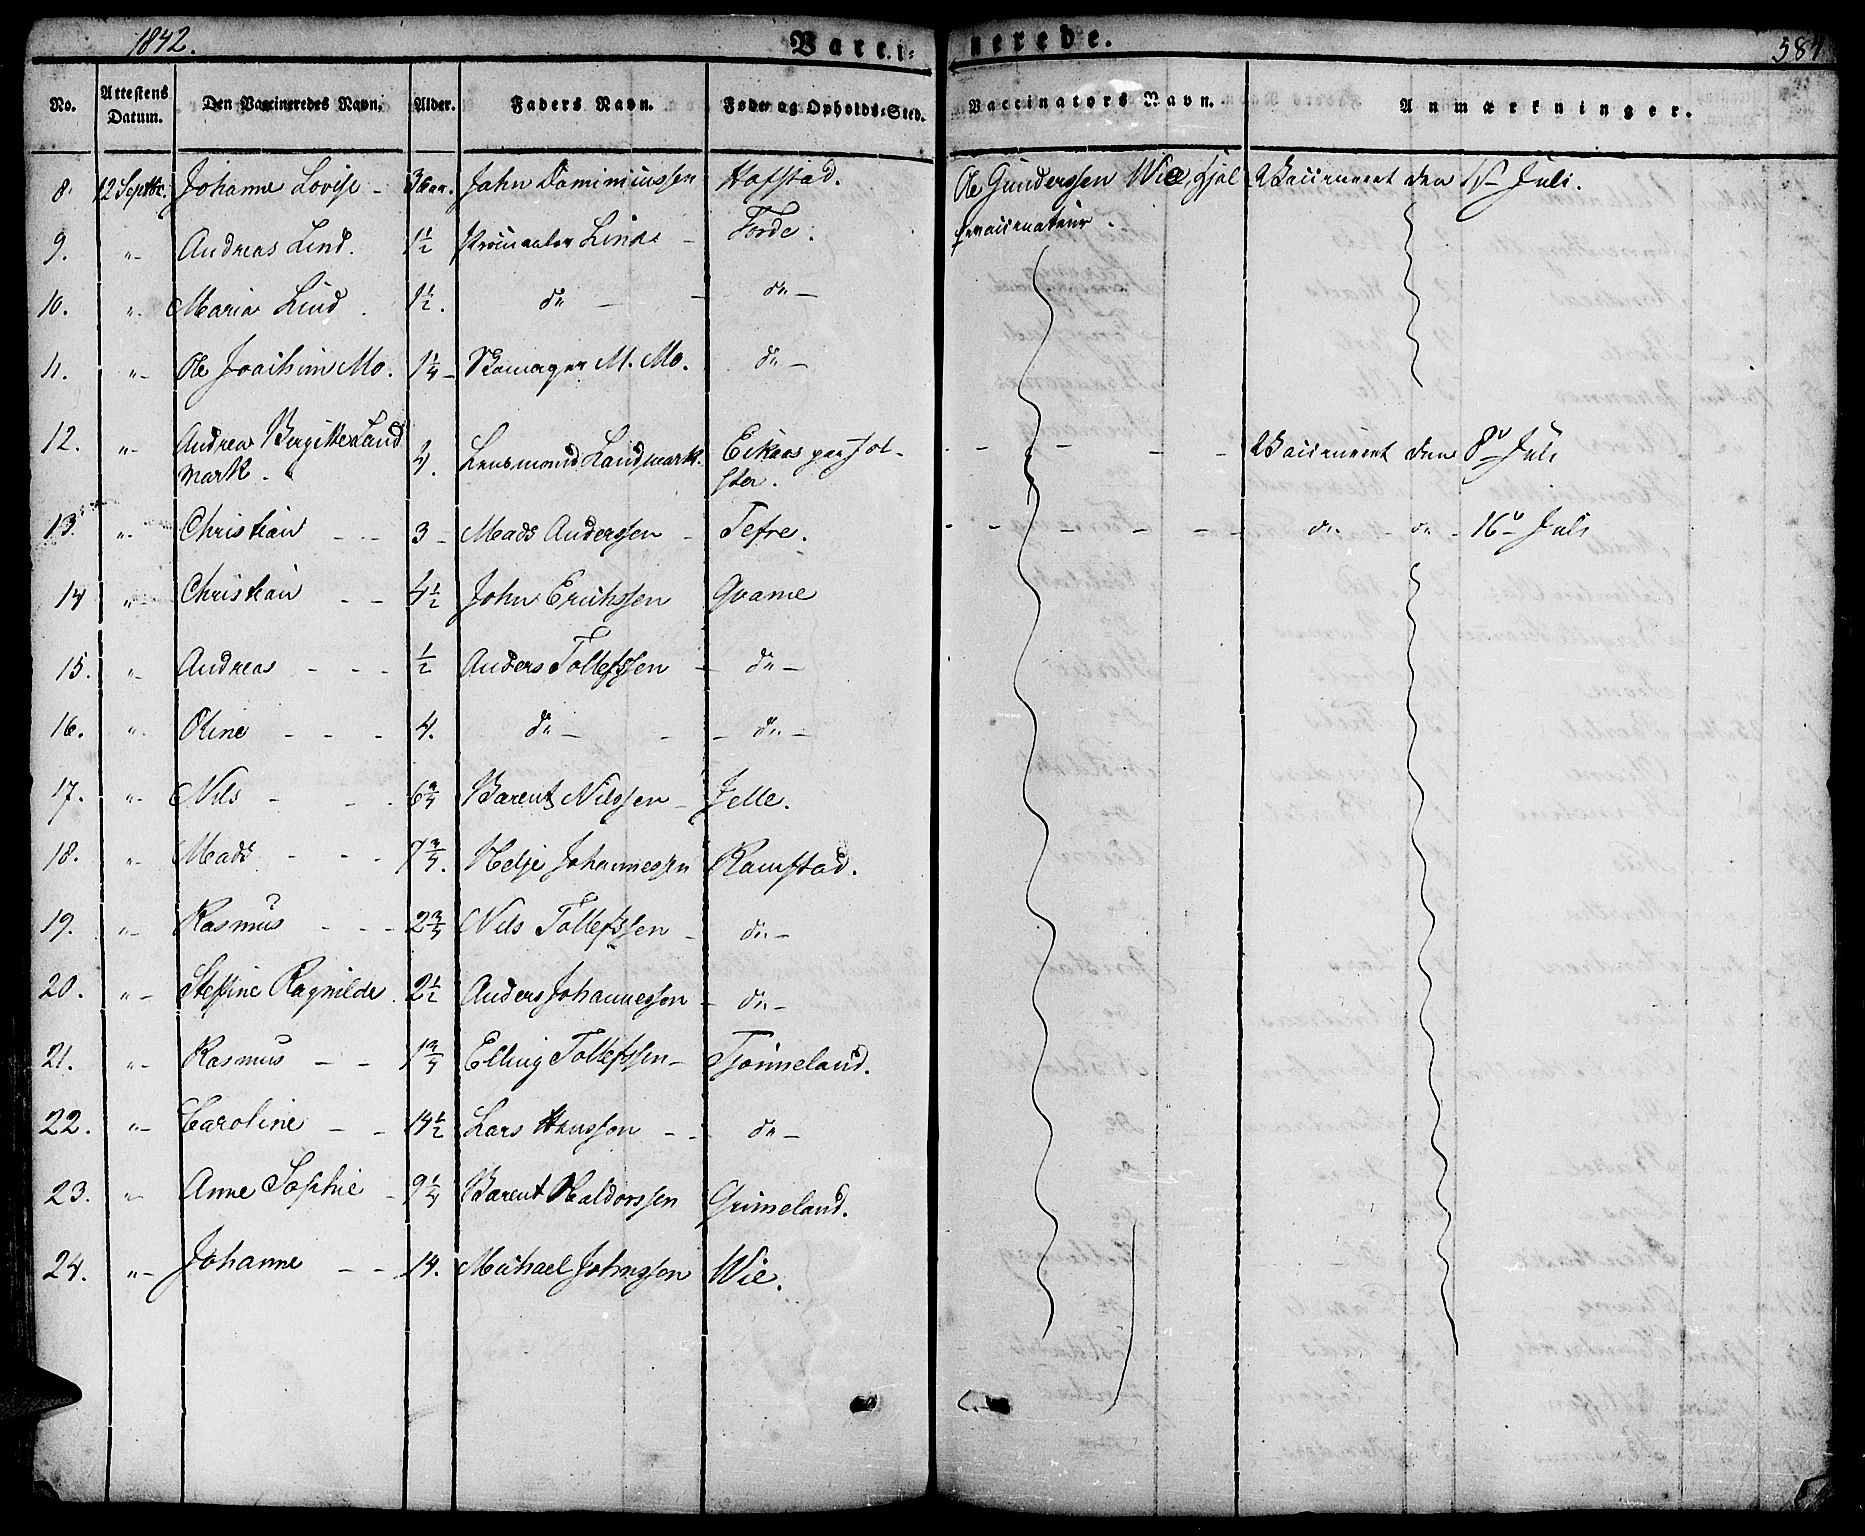 1842. Vacci= nerede. 584
No. Attestens Datum. Den Vaccineredes Navn. Alder. Faders Navn. Føde= og Opholds=Sted. Vaccinators Navn. Anmærkninger.
8. 12 Septbr. Johanne Lovise - 3 Johan Hafstad. Ole Gunderssen Wie, hjæl Vaccineret den Juli.
9. "- Andreas Lind. 1½ Procurator Linds - Førde. pevaccinateur.
10. "- Maria Lind. 1½. do - do -
11. "- Ole Joachim Mo. 1¼ M. Mo. do -
12. "- Andrea Bergitte Land 4. Lensmand Landmark. Eikaas paa Jøl- - - - - Vaccineret den 8de Juli
mark. ster.
13. "- Christian - - 3 - Mads Anderssen - Tefre. - - - - - do do - 16de Juli
14 "- Christian - - 4½ John Erichssen Qvame
15. "- Andreas - - - ½ Anders Tollefssen - do -
16. "- Oline - - - 4. do - - do -
17. "- Nils - - - 6¾ Barent Nilssen - Jelle.
18. "- Mads - - - 7¾. Helje Johannessen Ramstad.
19. "- Rasmus - - - 2¾ Nils Tollefssen - do -
20. "- Steffine Ragnilde 2½ Anders Johannessen - do -
21. "- Rasmus - - 1¾ Elling Tollefssen - Tjønneland.
22. "- Caroline - - 14½ Lars Hanssen - - do -
23. "- Anne Sophie - 9¼ Barent Haldorssen Grimeland.
24. "- Johanne - - 14. Michael Johnssen Wie.